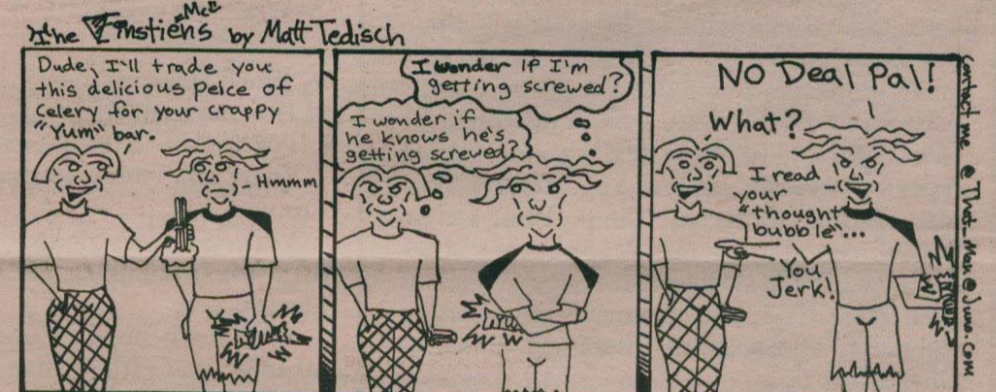 The Einstiens by Matt Tedisch
Dude, I'll trade you
this delicious peice of
celery for your crappy
"Yum" bar.
Hmmm
I wonder if I'm
getting screwed?
I wonder if
he knows he's
getting screwed?
NO Deal Pal!
What?
I read
your
"thought
bubble"...
You
Jerk!
contact me @ That_Man@Juno.com